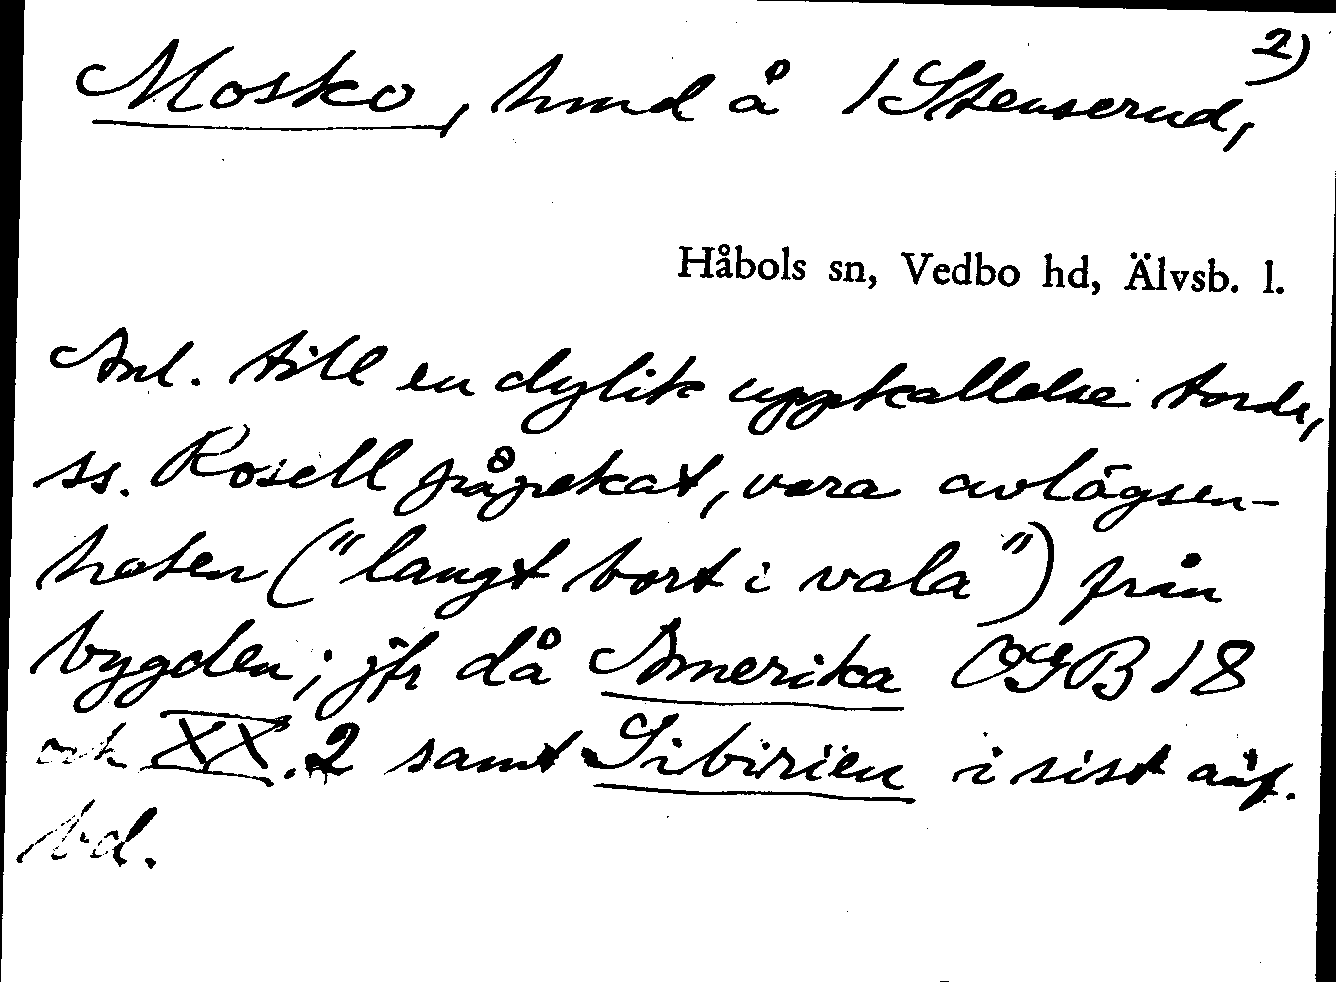 2)
Mosko, hmd å 1 Stenserud,
Håbols sn, Vedbo hd, Älvsb. l.
Anl. till en dylik uppkallelse torde,
ss. Rosell påpekat, vara avlägsen-
heten ("langt bort i vala") från
bygden; jfr då Amerika OGB 18
och XX.2 samt Sibirien i sist anf.
bd.